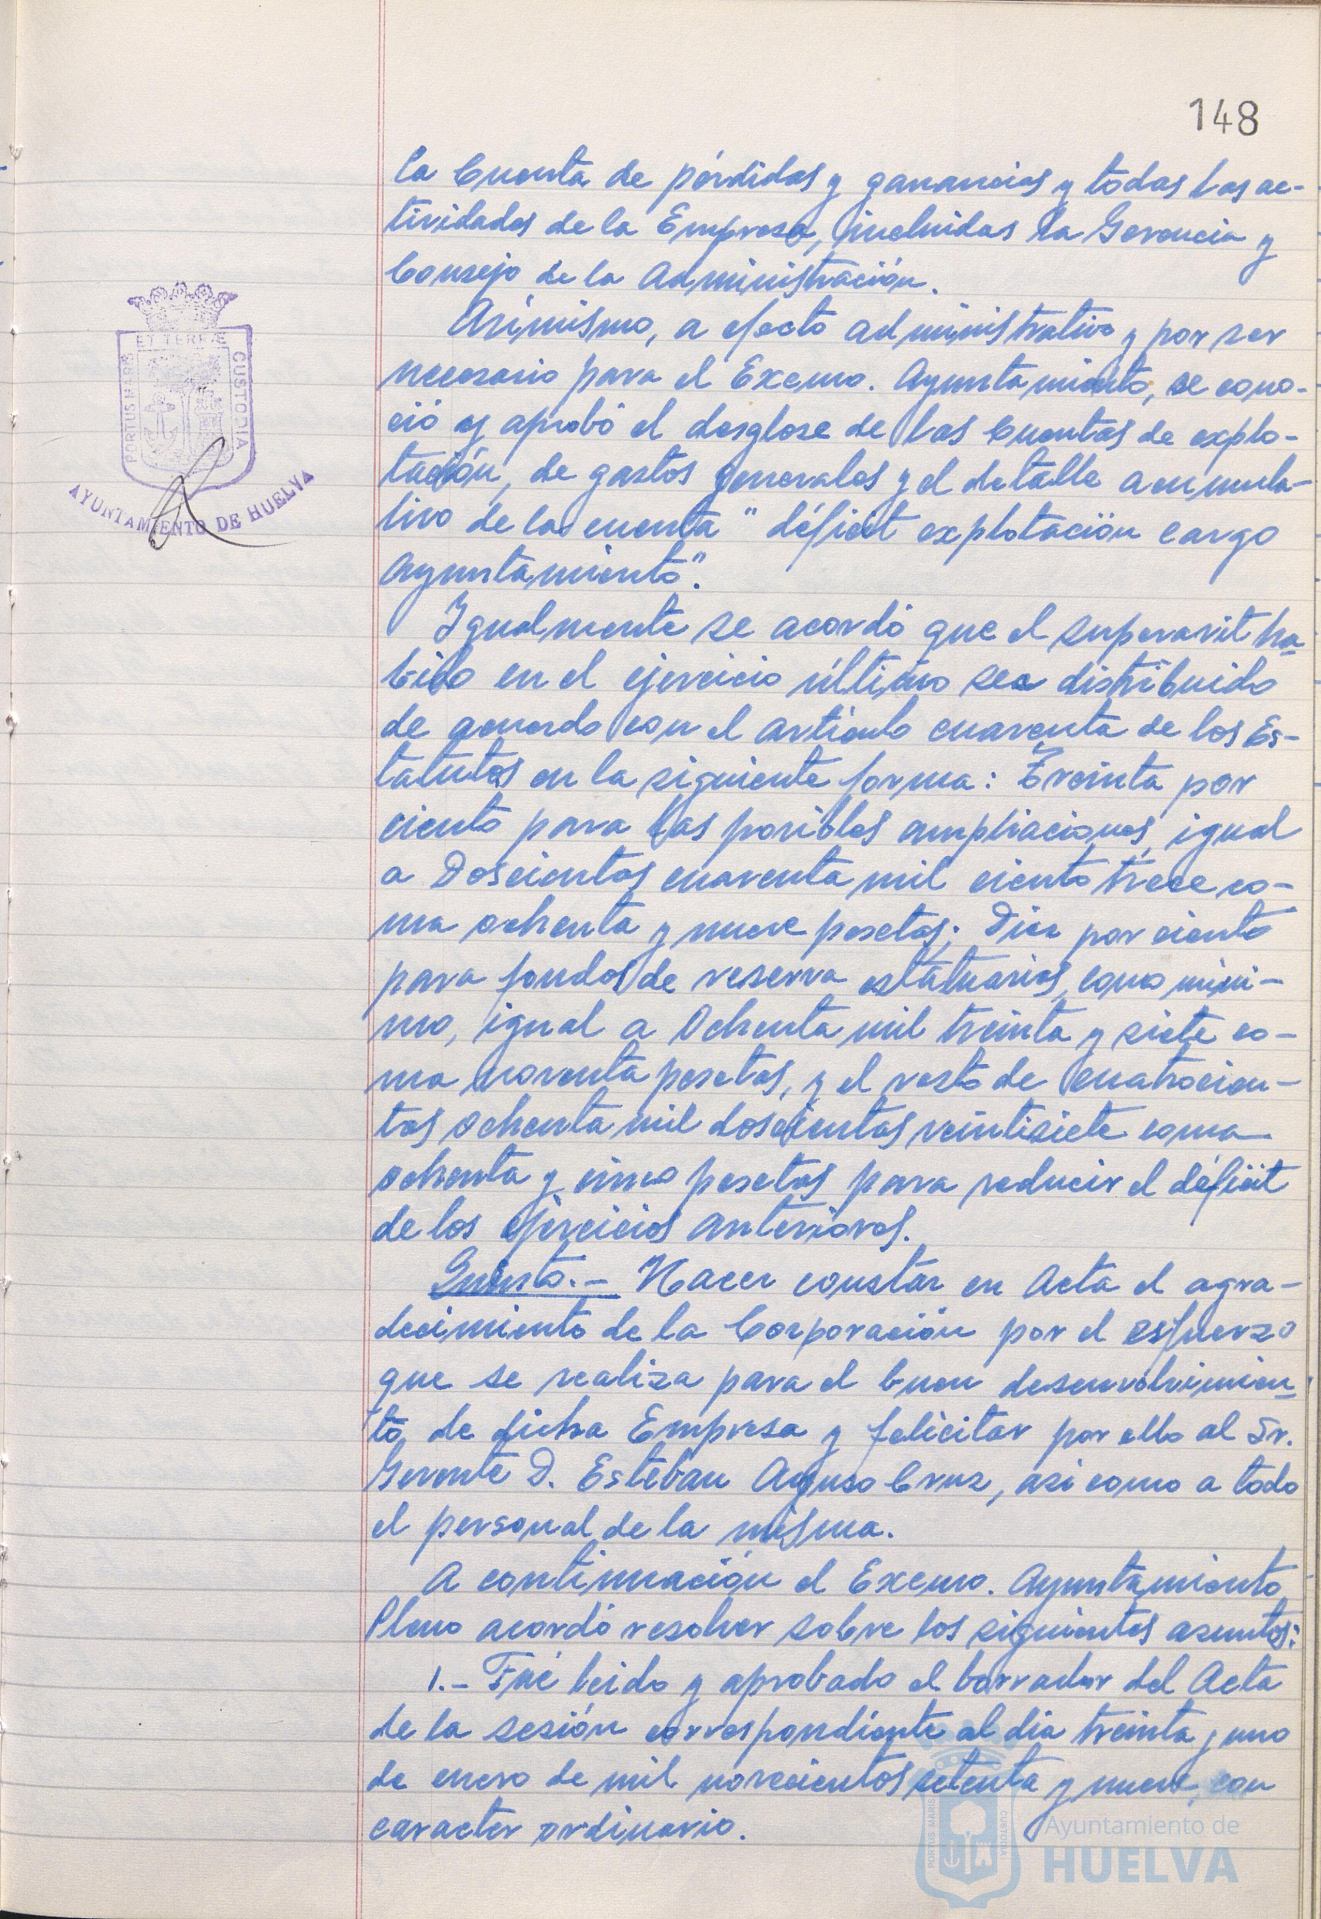 148
la Cuenta de pérdidas y ganancias y todas las ac-
tividades de la Empresa, incluidas la Gerencia y
Consejo de la Administración.
Asimismo, a efecto administrativo y por ser
necesario para el Excmo. Ayuntamiento, se cono-
ció y aprobó el desglose de las Cuentas de explo-
tación, de gastos generales y el detalle acumula-
tivo de la cuenta "déficit explotación cargo
Ayuntamiento".
Igualmente se acordó que el superavit ha-
bido en el ejercicio último sea distribuido
de acuerdo con el artículo cuarenta de los Es-
tatutos en la siguiente forma: Treinta por
ciento para las posibles ampliaciones, igual
a Doscientas cuarenta mil ciento trece co-
ma ochenta y nueve pesetas; Diez por ciento
para fondos de reserva estatuarios, como míni-
mo, igual a Ochenta mil treinta y siete co-
ma noventa pesetas, y el resto de cuatrocien-
tas ochenta mil doscientas veintisiete coma
ochenta y cinco pesetas para reducir el déficit
de los ejercicios anteriores.
Quinto.- Hacer constar en Acta el agra-
decimiento de la Corporación por el esfuerzo
que se realiza para el buen desenvolvimien-
to de dicha Empresa y felicitar por ello al Sr.
Gerente D. Esteban Cruz, asi como a todo
el personal de la misma.
A continuación el Excmo. Ayuntamiento
Pleno acordó resolver sobre los siguientes asuntos:
1.- Fué leido y aprobado el borrador del Acta
de la sesión correspondiente al dia treinta y uno
de enero de mil novecientos setenta y nueve, con
caracter ordinario.
PORTUS MARIS
ET TERRÆ
CUSTODIA
AYUNTAMIENTO DE HUELVA
PORTUS MARIS
CUSTODIA
Ayuntamiento de
HUELVA